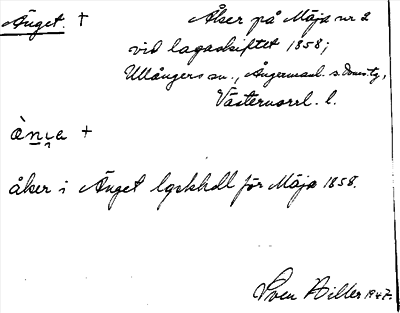 Änget. †
Åker på Mäja nr 2
vid lagaskiftet 1858;
Ullångers sn., Ångermanl. s. domstg,
Västernorrl. l.
åker i Änget lgskhdl för Mäja 1858.
Sven Hiller 1947.